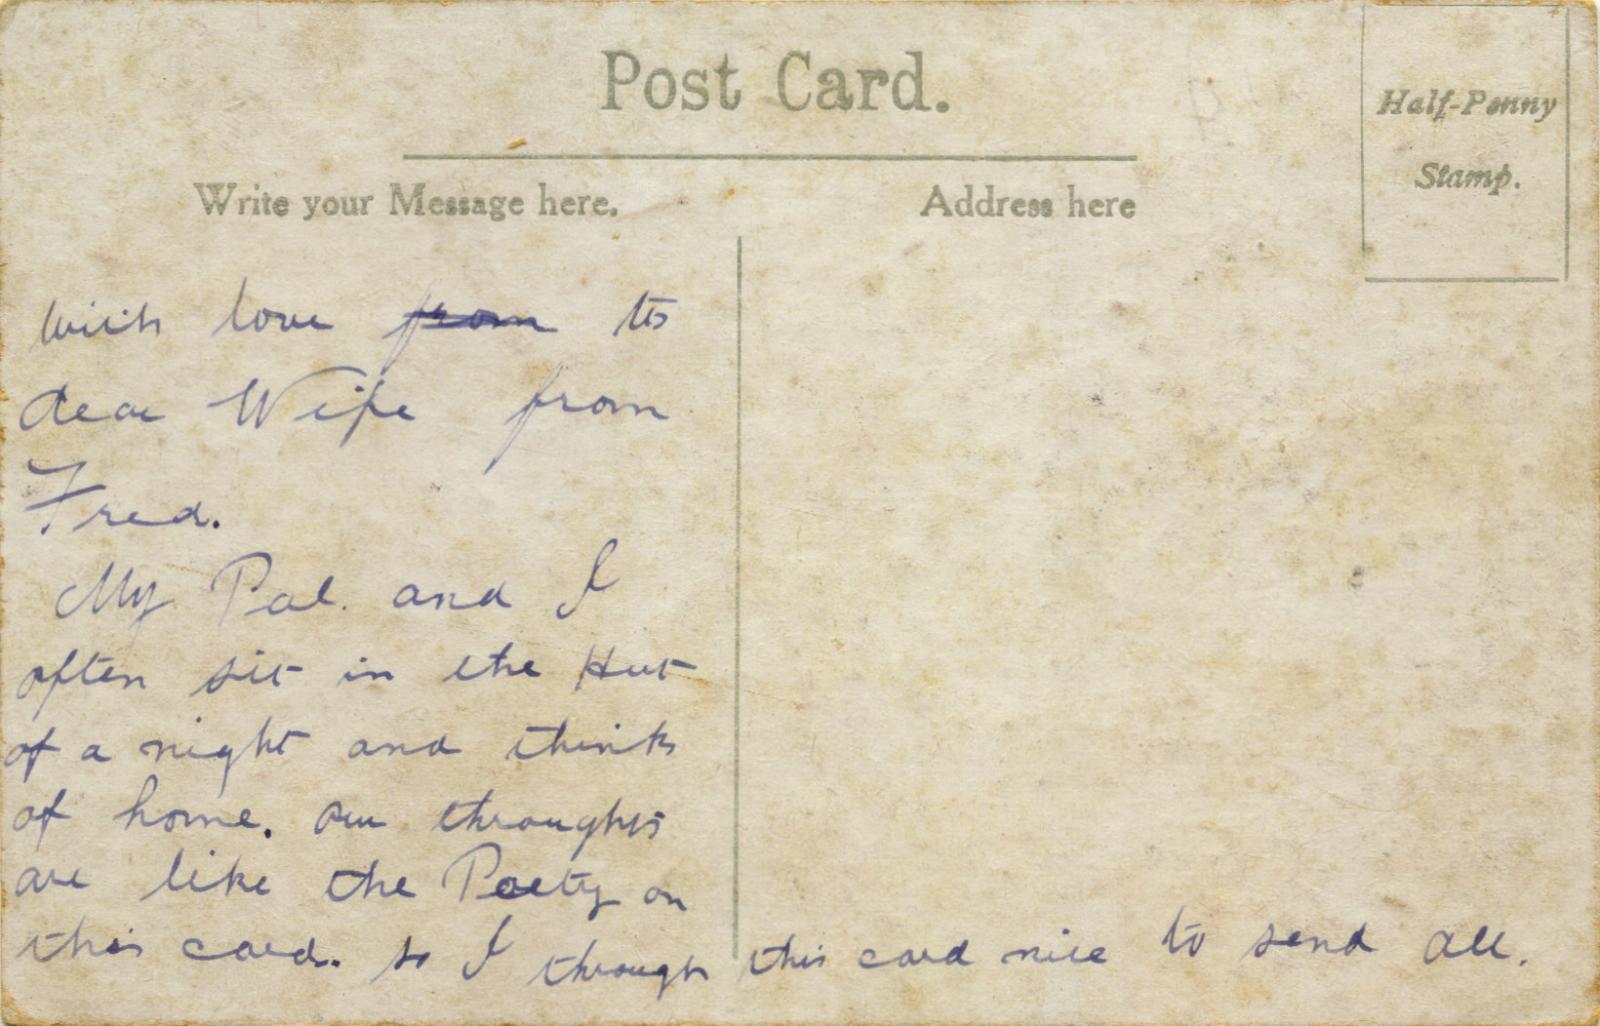 Post Card.
Half-Penny
Stamp.
Write your Message here.
Address here
With love from to
dear Wife from
Fred.
My Pal. and I
often sit in the Hut
of a night and think
of home. our throughts
are like the Poety on
this card. so I through this card nice to send all.